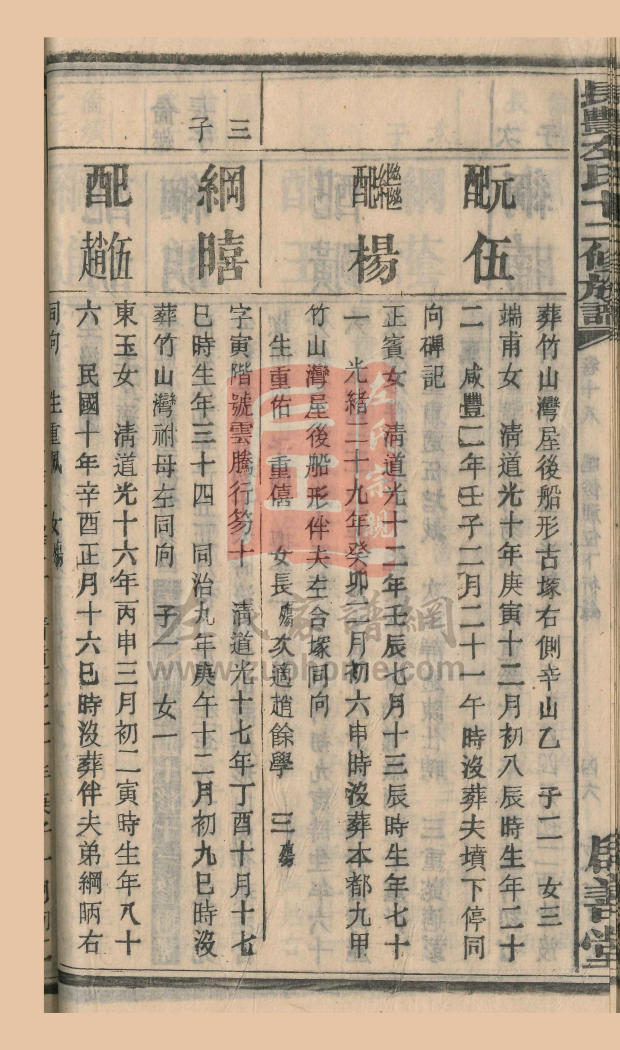 長豐左氏十二修族譜
葬竹山灣屋後船形古塚右側辛山乙 子二 女三
配伍
端甫女 清道光十年庚寅十二月初八辰時生年二十
二 咸豐二年壬子二月二十一午時沒葬夫墳下停同
向碑記
繼配楊
正賓女 清道光十二年壬辰七月十三辰時生年七十
一 光緒二十九年癸卯三月初六申時沒葬本都九甲
竹山灣屋後船形伴夫左合塚同向
生重佑 重僖 女長殤次適趙餘學 三殤
三子
綱暿
字寅階號雲騰行芴十 清道光十七年丁酉十月十七
巳時生年三十四 同治九年庚午十二月初九巳時沒
葬竹山灣祔母左同向 子一 女一
配伍趙
東玉女 清道光十六年丙申三月初二寅時生年八十
六 民國十年辛酉正月十六巳時沒葬伴夫弟綱昞右
同向 生重佩 女殤
左氏宗親
左氏家譜網
www.zuohome.com